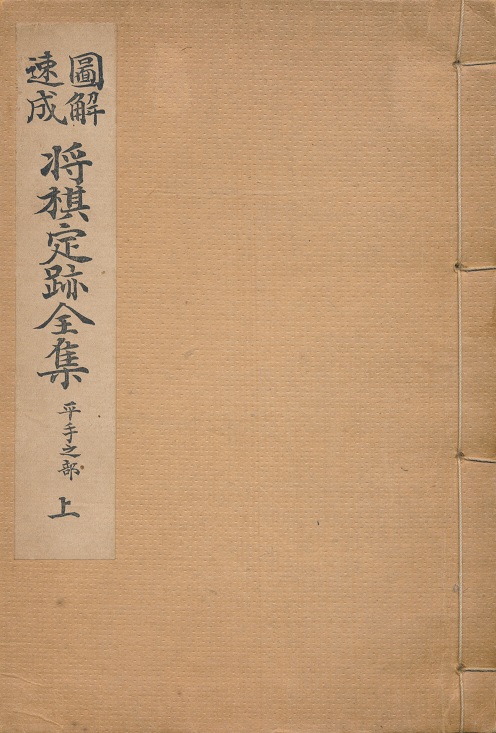 圖解
速成
将棋定跡全集
平手之部
上